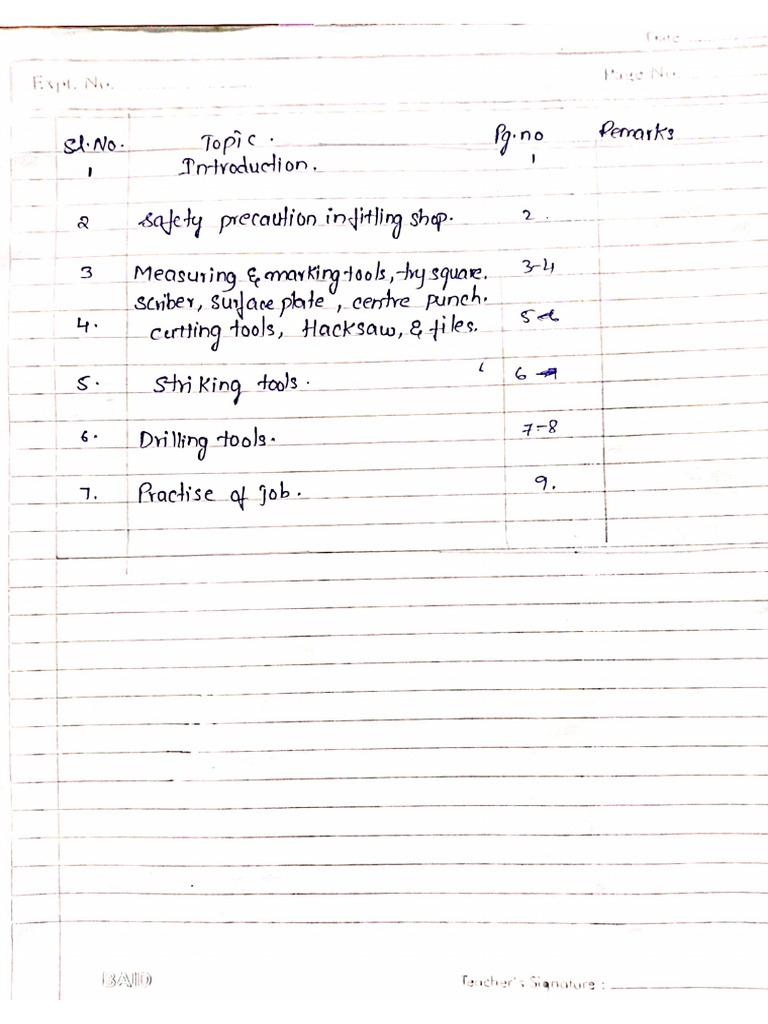 Date
Expt. No.
Page No.
Sl.No. Topic. Pg.no Remarks
1 Introduction. 1
2 Safety precaution in fitting shop. 2.
3 Measuring & marking tools, try square. 3-4
scriber, surface plate, centre punch.
4. cutting tools, Hacksaw, & files. 5
5. Striking tools. 6
6. Drilling tools. 7-8
7. Practise of job. 9.
BAID
Teacher's Signature :